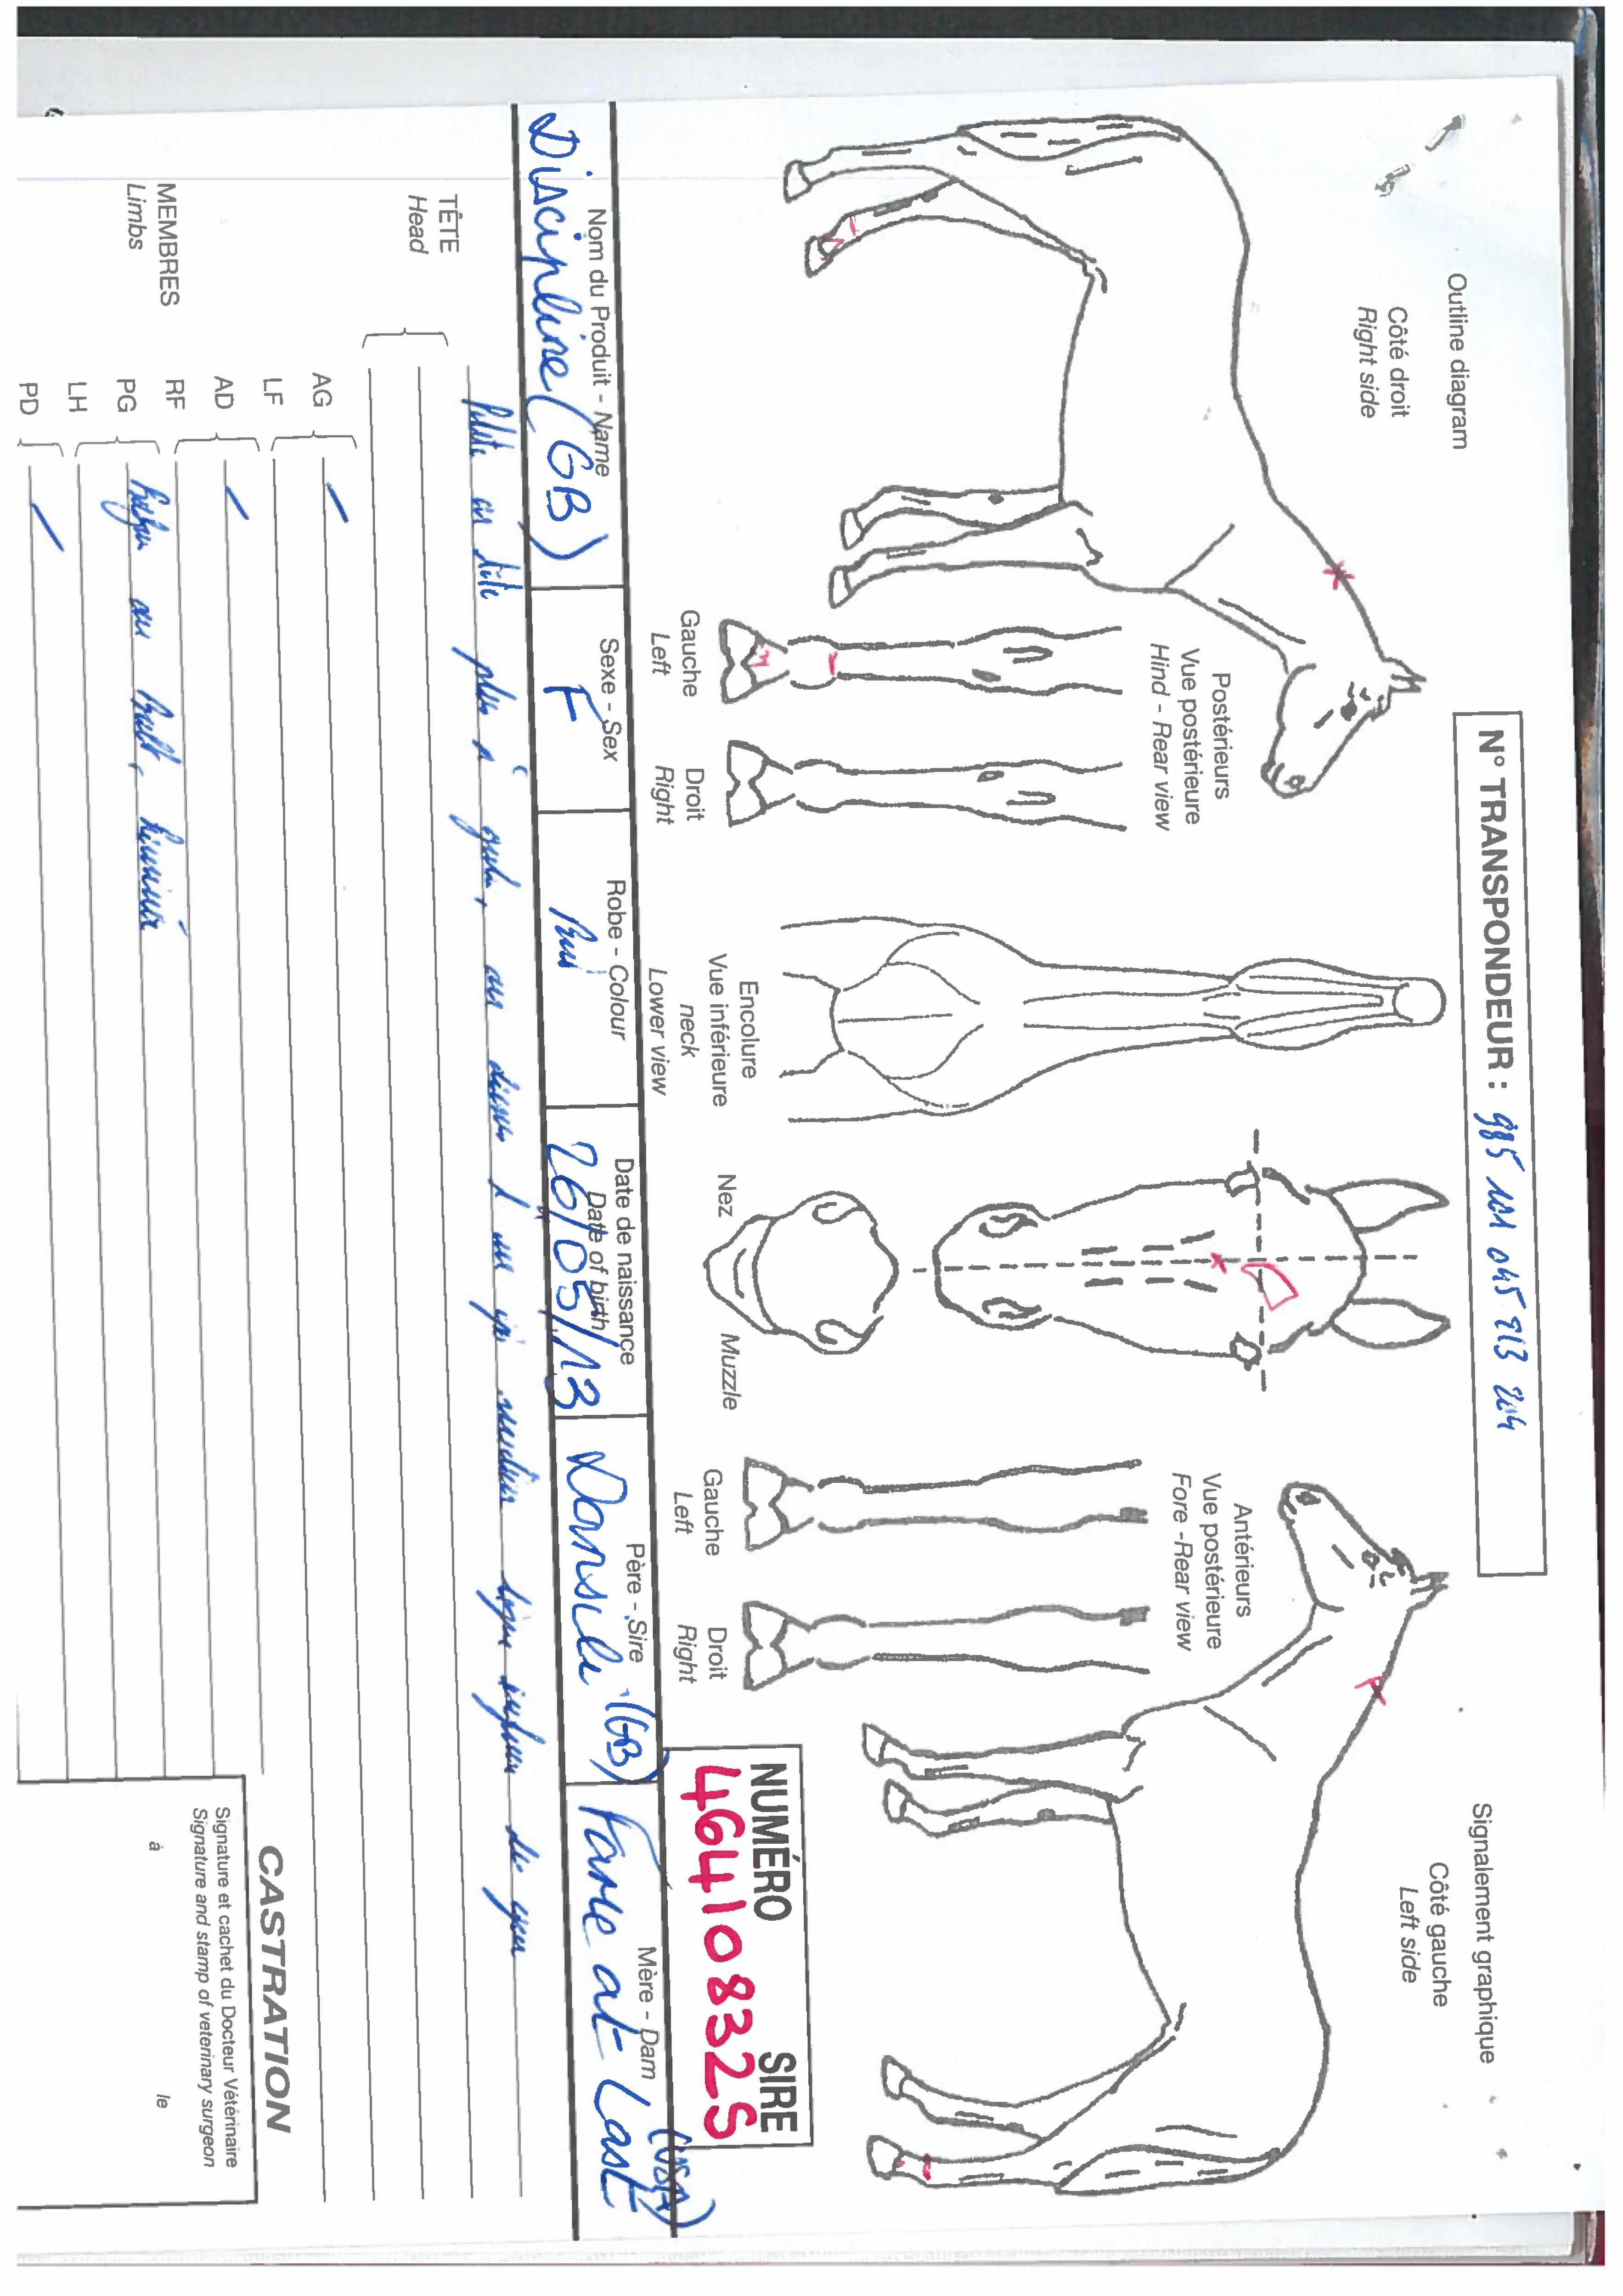 Outline diagram
Signalement graphique
N° TRANSPONDEUR : 985 101 045 213 204
Côté droit
Right side
Côté gauche
Left side
Postérieurs
Vue postérieure
Hind - Rear view
Antérieurs
Vue postérieure
Fore -Rear view
Gauche
Left
Droit
Right
Encolure
Vue inférieure
neck
Lower view
Nez
Muzzle
Gauche
Left
Droit
Right
NUMÉRO SIRE
46410832S
Nom du Produit - Name
Discipline (GB)
Sexe - Sex
F
Robe - Colour
Bai
Date de naissance
Date of birth
26/03/13
Père - Sire
Dansili (GB)
Mère - Dam
Fame at Last (USA)
TÊTE
Head
en tête plus à au dessus
MEMBRES
Limbs
AG
LF
AD
RF
PG
LH
PD
CASTRATION
Signature et cachet du Docteur Vétérinaire
Signature and stamp of veterinary surgeon
à
le